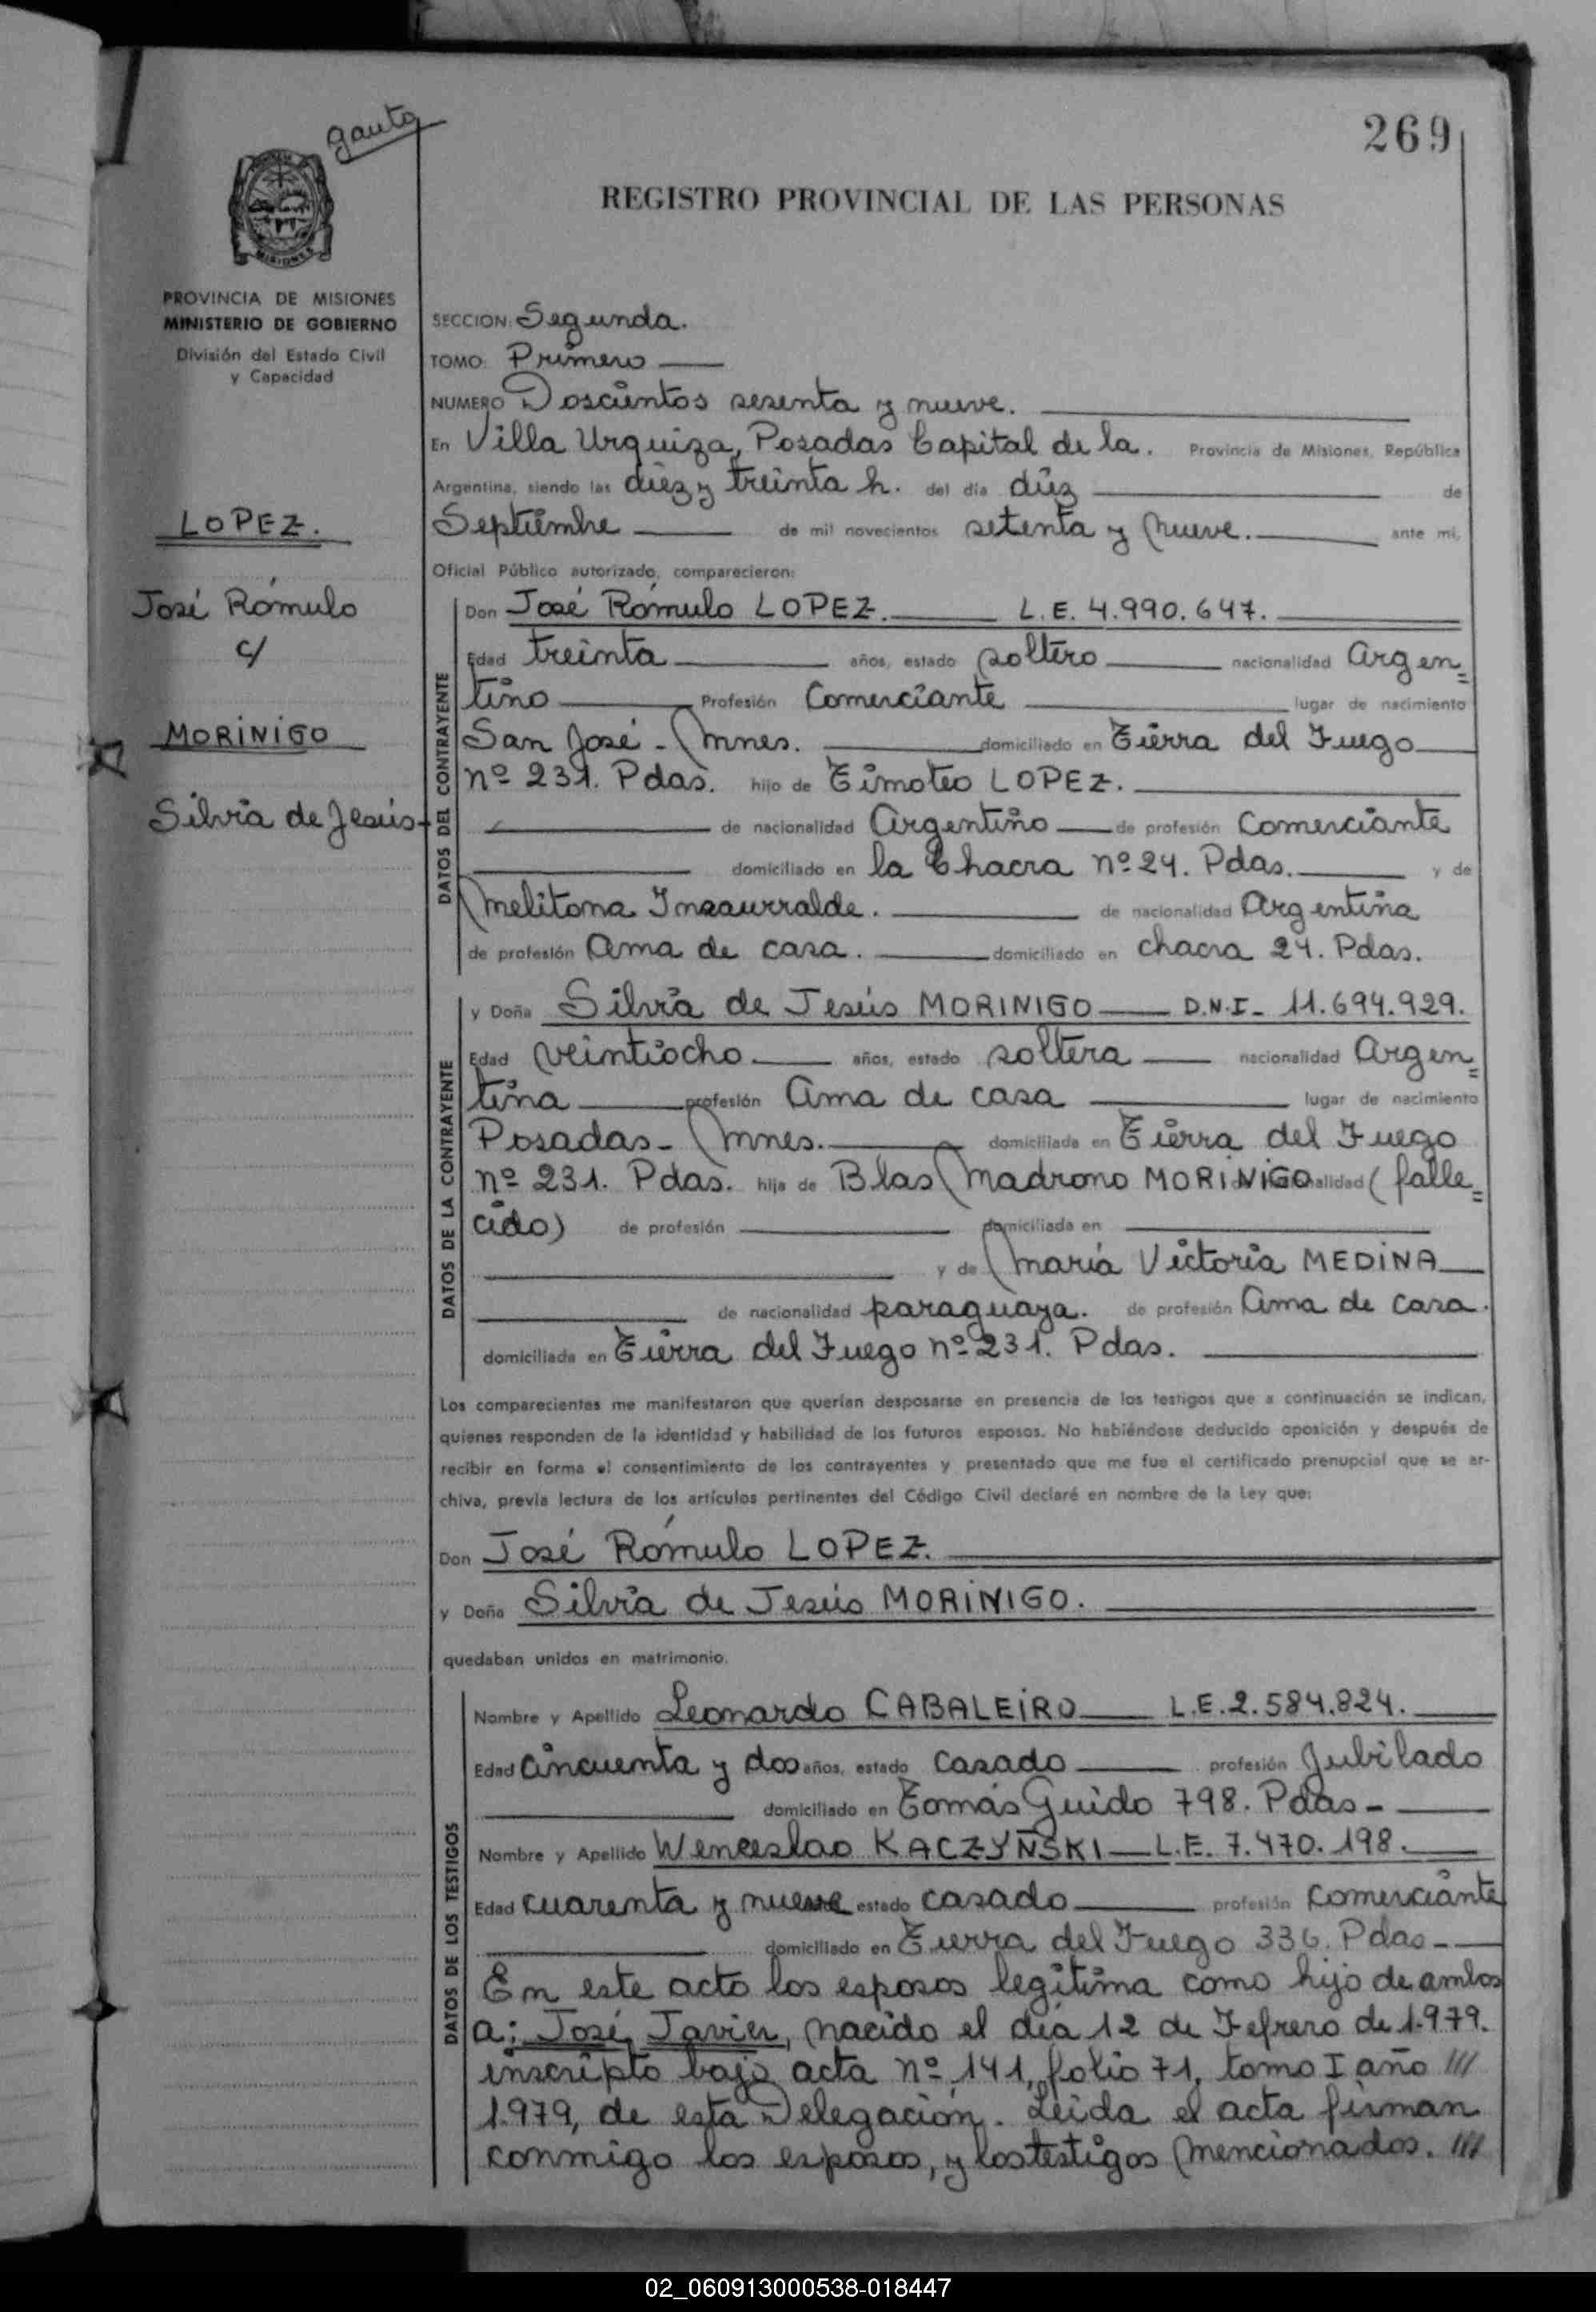 gauto
269
REGISTRO PROVINCIAL DE LAS PERSONAS
MISIONES
PROVINCIA DE MISIONES
MINISTERIO DE GOBIERNO
División del Estado Civil
y Capacidad
LOPEZ.
José Rómulo
c/
MORINIGO
Silvia de Jesús
SECCION: Segunda.
TOMO: Primero
NUMERO Doscientos sesenta y nueve.
En Villa Urquiza, Posadas Capital de la. Provincia de Misiones, República
Argentina, siendo las diez y treinta h. del día diez de
Septiembre de mil novecientos setenta y nueve. ante mi,
Oficial Público autorizado, comparecieron:
DATOS DEL CONTRAYENTE
Don José Rómulo LOPEZ. L.E. 4.990.647.
Edad treinta años, estado soltero nacionalidad Argen=
tino Profesión Comerciante lugar de nacimiento
San José - Mnes. domiciliado en Tierra del Fuego
nº 231. Pdas. hijo de Timoteo LOPEZ.
de nacionalidad Argentino de profesión Comerciante
domiciliado en la Chacra nº 24. Pdas. y de
Melitona Insaurralde. de nacionalidad Argentina
de profesión Ama de casa. domiciliado en chacra 24. Pdas.
DATOS DE LA CONTRAYENTE
y Doña Silvia de Jesús MORINIGO D.N.I- 11.694.929.
Edad veintiocho años, estado soltera nacionalidad Argen=
tina profesión Ama de casa lugar de nacimiento
Posadas- Mnes. domiciliada en Tierra del Fuego
nº 231. Pdas. hija de Blas Madrono MORINIGO (falle=
cido) de profesión domiciliada en
y de María Victoria MEDINA
de nacionalidad paraguaya. de profesión Ama de casa.
domiciliada en Tierra del Fuego nº 231. Pdas.
Los comparecientes me manifestaron que querían desposarse en presencia de los testigos que a continuación se indican,
quienes responden de la identidad y habilidad de los futuros esposos. No habiéndose deducido oposición y después de
recibir en forma el consentimiento de los contrayentes y presentado que me fue el certificado prenupcial que se ar-
chiva, previa lectura de los artículos pertinentes del Código Civil declaré en nombre de la Ley que:
Don José Rómulo LOPEZ.
y Doña Silvia de Jesús MORINIGO.
quedaban unidos en matrimonio.
DATOS DE LOS TESTIGOS
Nombre y Apellido Leonardo CABALEIRO L.E. 2.584.824.
Edad Cincuenta y dos años, estado casado profesión Jubilado
domiciliado en Tomás Guido 798. Pdas-
Nombre y Apellido Wenceslao KACZYÑSKI L.E. 7.470.198.
Edad cuarenta y nueve estado casado profesión comerciante
domiciliado en Tierra del Fuego 336. Pdas-
En este acto los esposos legitima como hijo de ambos
a: José Javier, nacido el día 12 de Febrero de 1.979.
inscripto bajo acta nº 141, folio 71, tomo I año ///
1.979, de esta Delegación. Leida el acta firman
conmigo los esposos, y los testigos mencionados. ///
02_060913000538-018447